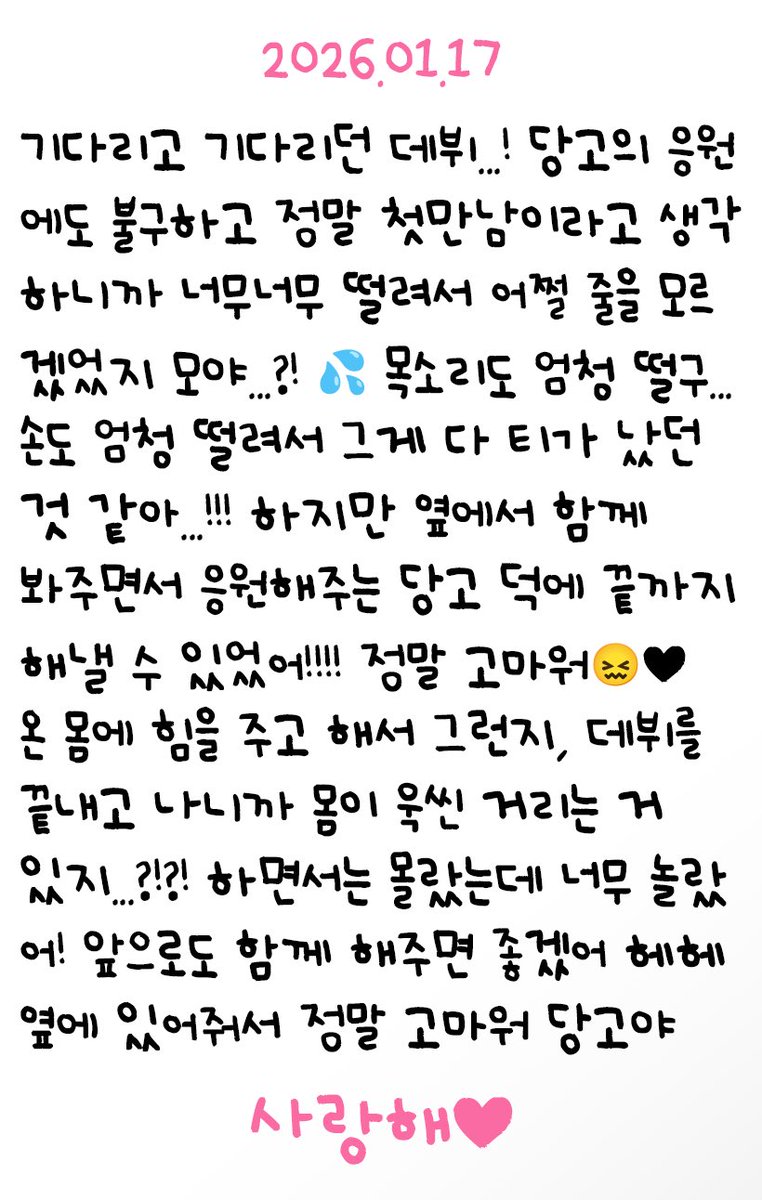 2026.01.17
기다리고 기다리던 데뷔...! 당고의 응원
에도 불구하고 정말 첫만남이라고 생각
하니까 너무너무 떨려서 어쩔 줄을 모르
겠었지 모야...?! 💦 목소리도 엄청 떨구...
손도 엄청 떨려서 그게 다 티가 났던
것 같아...!!! 하지만 옆에서 함께
봐주면서 응원해주는 당고 덕에 끝까지
해낼 수 있었어!!!! 정말 고마워😖🖤
온 몸에 힘을 주고 해서 그런지, 데뷔를
끝내고 나니까 몸이 욱씬 거리는 거
있지...?!?! 하면서는 몰랐는데 너무 놀랐
어! 앞으로도 함께 해주면 좋겠어 헤헤
옆에 있어줘서 정말 고마워 당고야
사랑해♥